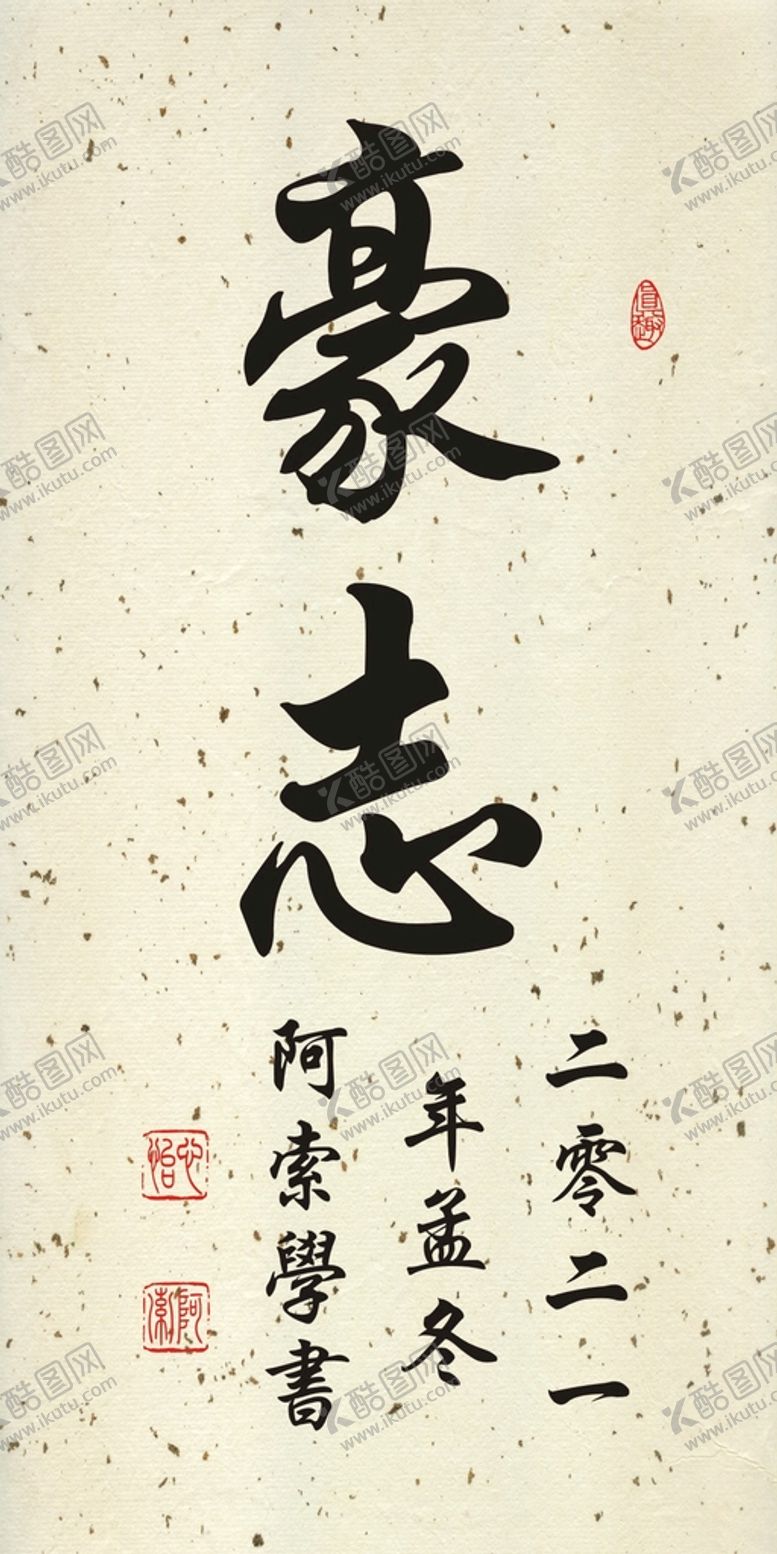 豪志
二零二一
年孟冬
阿索學書
阿索
酷图网
www.ikutu.com